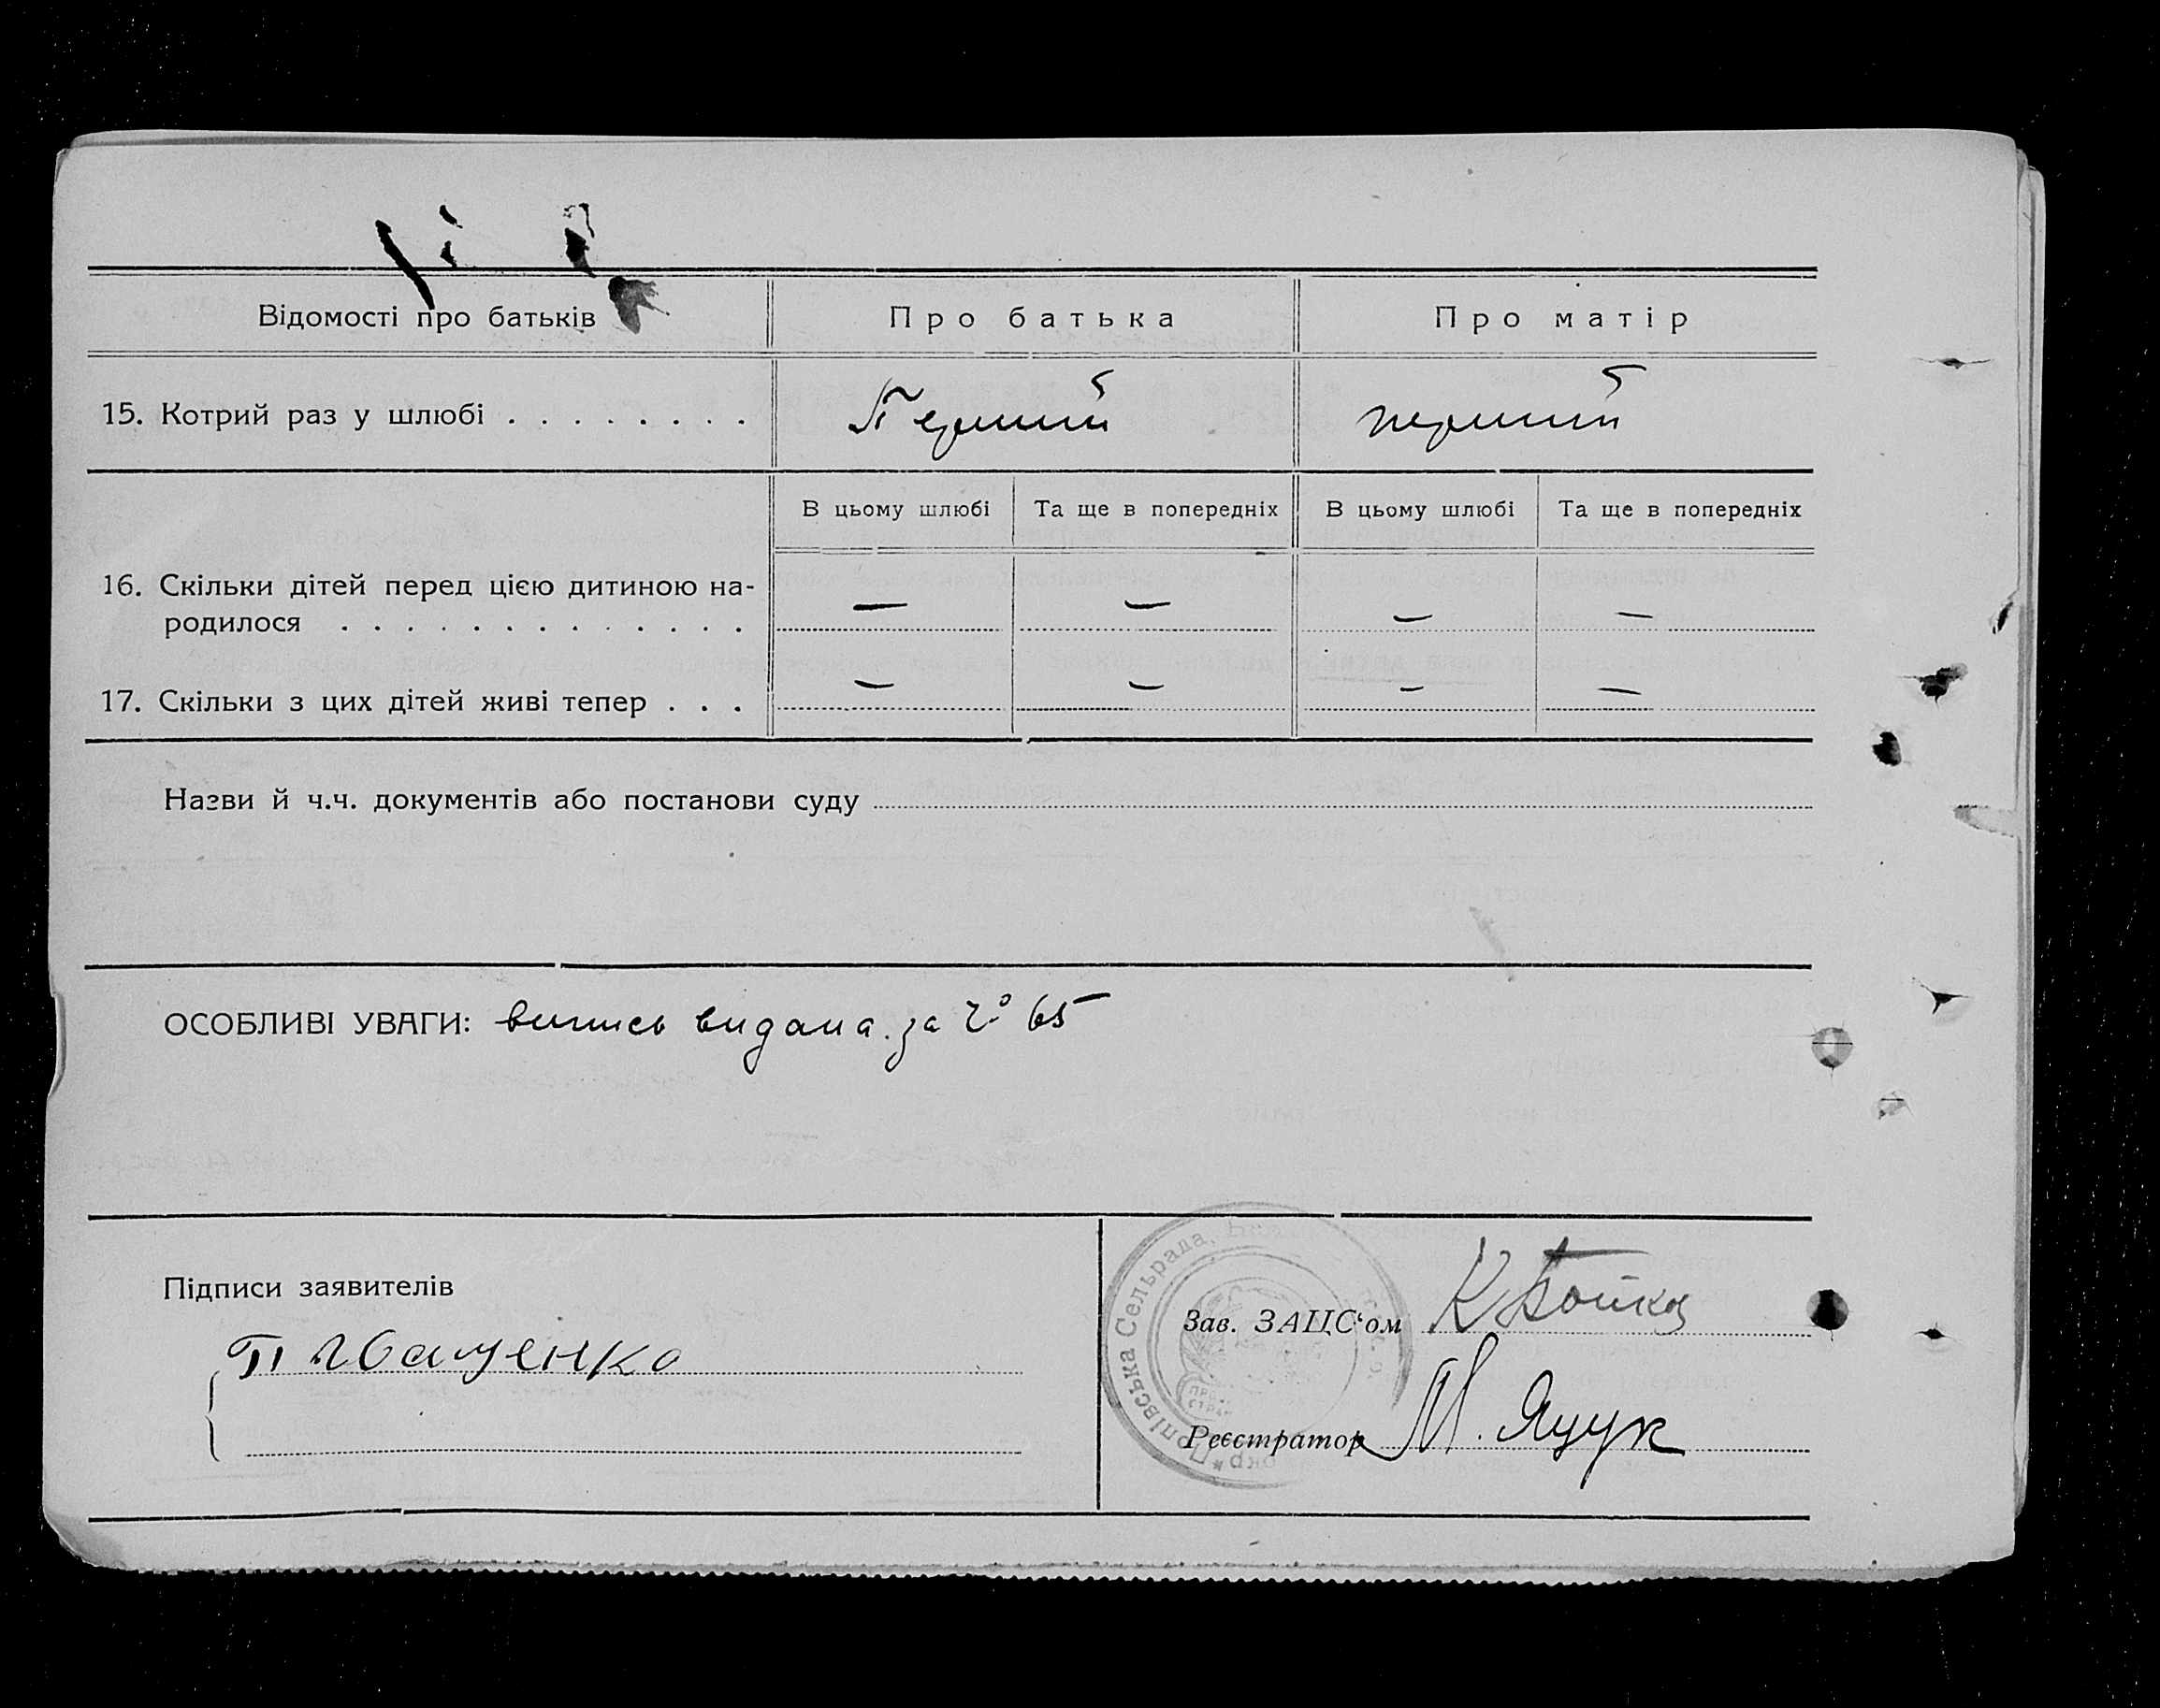 Відомості про батьків Про батька Про матір
15. Котрий раз у шлюбі . . . . . . . . Перший перший
В цьому шлюбі Та ще в попередніх В цьому шлюбі Та ще в попередніх
16. Скільки дітей перед цією дитиною на-
родилося . . . . . . . . . . . . . . — — — —
17. Скільки з цих дітей живі тепер . . . — — — —
Назви й ч.ч. документів або постанови суду
ОСОБЛИВІ УВАГИ: випись видана за № 65
Підписи заявителів
П Іващенко
Зав. ЗАЦС'ом К Бойко
Реєстратор М. Яцук
Сельрада,